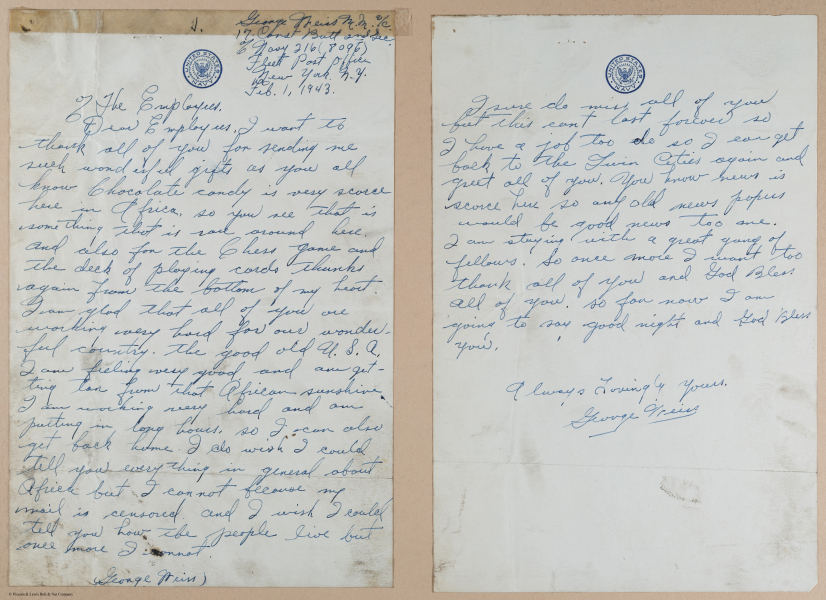 1.
George Weiss M.M. 2/c
17 Const Batt and Sec.
% Navy 216 (8096)
Fleet Post Office
New York N.Y.
Feb. 1, 1943.
% The Employees.
Dear Employees. I want to
thank all of you for sending me
such wonderful gifts as you all
know Chocolate candy is very scorce
here in Africa, so you see that is
something that is rair around here.
and also for the Chess game and
the deck of playing cards thanks
again from the bottom of my heart.
I am glad that all of you are
working very hard for our wonder-
ful country. the good old U.S.A.
I am feeling very good and am get-
ting tan from that African sunshine
I am working very hard and am
putting in long hours. so I can also
get back home I do wish I could
tell you everything in general about
Africa but I cannot because my
mail is censored. and I wish I could
tell you how the people live but
once more I cannot.
(George Weiss)
I sure do miss all of you
but this cant last forever so
I have a job too do so I can get
back to the Twin Cities again and
greet all of you. You know news is
scorce here so any old news papers
would be good news too me.
I am staying with a great gang of
fellows. So once more I want too
thank all of you and God Bless
all of you. so for now I am
going to say good night and God Bless
you.
Always Lovingly yours.
George Weiss
UNITED STATES NAVY
UNITED STATES NAVY